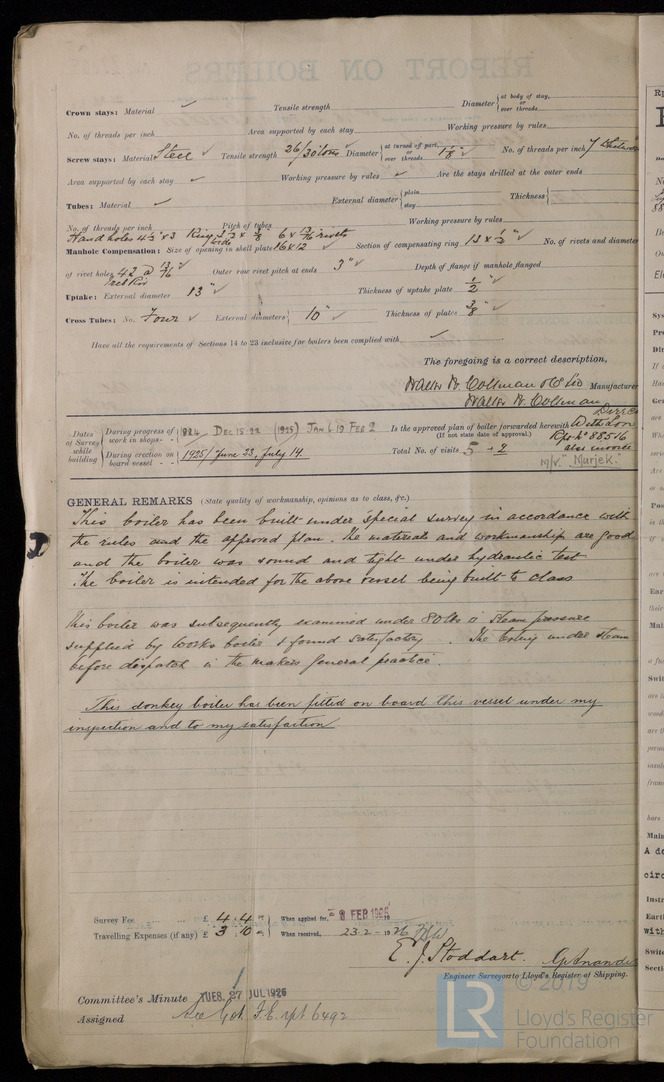 REPORT ON BOILERS
Crown stays: Material ✓ Tensile strength Diameter at body of stay, or over threads
No. of threads per inch Area supported by each stay Working pressure by rules
Screw stays: Material Steel ✓ Tensile strength 26/30 tons ✓ Diameter at turned off part, or over threads 1⅛" ✓ No. of threads per inch 7
Area supported by each stay ✓ Working pressure by rules ✓ Are the stays drilled at the outer ends
Tubes: Material ✓ External diameter plain stay Thickness
No. of threads per inch Pitch of tubes Working pressure by rules
Hand holes 4½" x 3 Ring
Manhole Compensation: Size of opening in shell plate 16 x 12 ✓ Section of compensating ring 13 x ½" ✓ No. of rivets and diameter
of rivet holes 42 @ Outer row rivet pitch at ends 3" ✓ Depth of flange if manhole flanged
Uptake: External diameter 13" ✓ Thickness of uptake plate ½" ✓
Cross Tubes: No. Four ✓ External diameters 10" ✓ Thickness of plates ⅜" ✓
Have all the requirements of Sections 14 to 23 inclusive for boilers been complied with ✓
The foregoing is a correct description,
Manufacturer
Walter W. Coltman
Dates of Survey while building
During progress of work in shops - - Dec 15.22 (1925) Jan 6.19 Feb 2
During erection on board vessel - - - 1925/ June 23, July 14
Is the approved plan of boiler forwarded herewith
(If not state date of approval.) Rpt No 88516
Total No. of visits 5 + 2
M/V. "Marjek."
GENERAL REMARKS (State quality of workmanship, opinions as to class, &c.)
This boiler has been built under special survey in accordance with
the rules and the approved plan. The materials and workmanship are good
and the boiler was sound and tight under hydraulic test
The boiler is intended for the above vessel being built to class
This boiler was subsequently examined under 80 lbs steam pressure
supplied by works boiler & found satisfactory. The being under steam
before dispatch is the makers general practice.
This donkey boiler has been fitted on board this vessel under my
inspection and to my satisfaction
Survey Fee ... ... £ 4 . 4 . When applied for, FEB 1925
Travelling Expenses (if any) £ 3 . 10 . When received, 23.2 - 1926
E. J. Stoddart.
Engineer Surveyor to Lloyd's Register of Shipping.
Committee's Minute TUES. 27 JUL 1926
Assigned See Got. F.E. rpt 6492
© 2019
LR
Lloyd's Register
Foundation